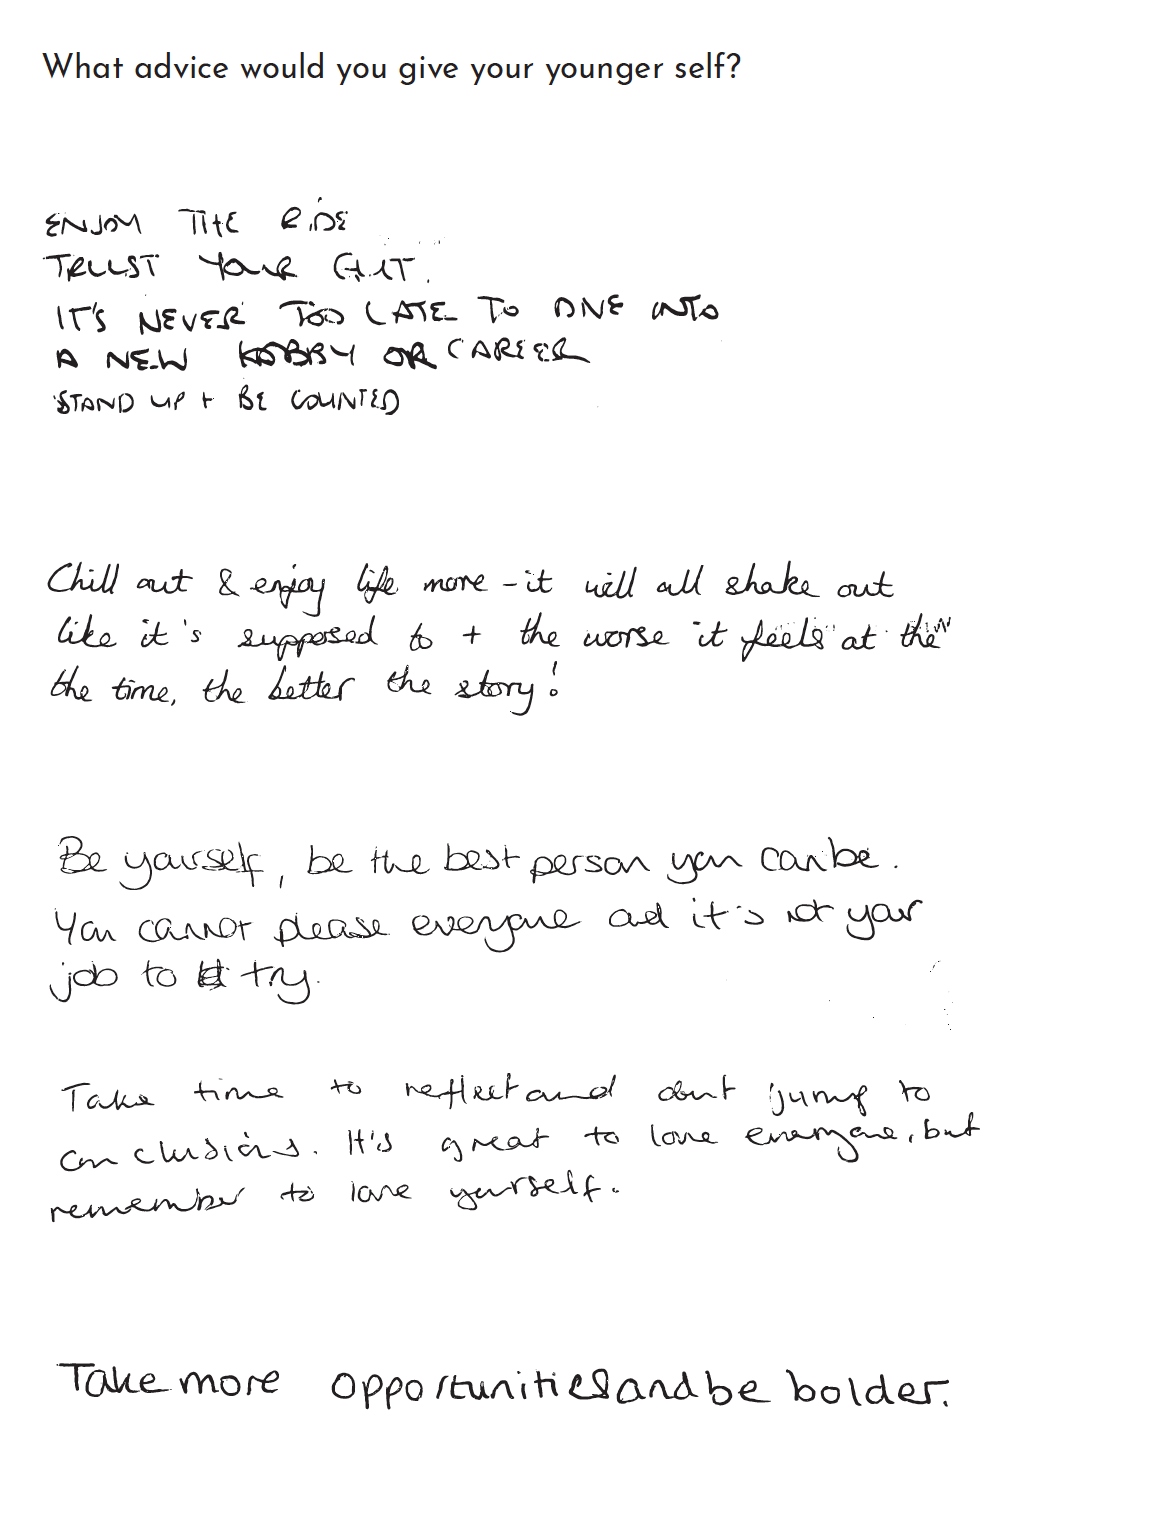 What advice would you give your younger self?
ENJOY THE RIDE
TRUST YOUR GUT.
IT'S NEVER TOO LATE TO DIVE INTO
A NEW HOBBY OR CAREER
STAND UP + BE COUNTED
Chill out & enjoy life more - it will all shake out
like it's supposed to + the worse it feels at the
the time, the better the story!
Be yourself, be the best person you can be.
You cannot please everyone and it's not your
job to try.
Take time to reflect and don't jump to
conclusions. It's great to love everyone, but
remember to love yourself.
Take more opportunities and be bolder.